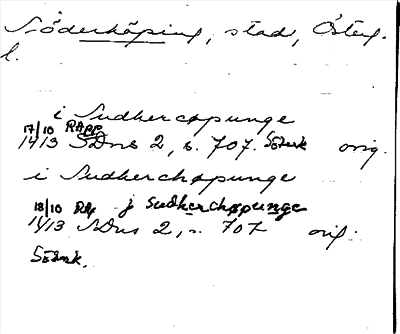 Söderköping, stad, Österg.
l.
i Sudhercøpunge
17/10 RAPp
1413 SDns 2, s. 707. Söderk orig.
i Sudherchøpunge
18/10 RAp j Sudherchøpunge
1413 SDns 2, s. 707 orig.
Söderk.